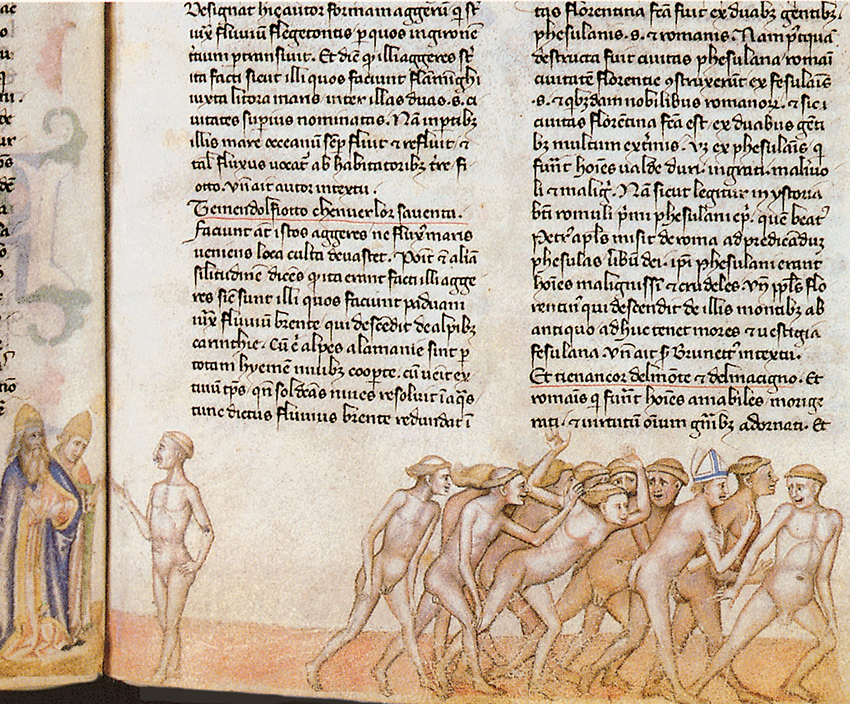 Designat hic autor formam aggerum q̄ st̄
iux̄ fluuium flegetontis p quos in gironē
tium ptransiuit. Et dic̄ q̄ illi aggeres st̄
ita facti sicut illi quos faciunt flamīghi
iuxta litora maris inter illas duas .s. ci
uitates supius nominatas. Nā in ptibz
illis mare occeanū semp fluit & refluit &
tal' fluxus uocat' ab habitatoribz t're fi
otto. vn̄ ait autor in textu.
Temendol fiotto cheinuer lor sauenta.
faciunt at istos aggeres ne flux' maris
ueniens loca culta deuastet. Poīt & aliā
silitudinē dicēs q̄ ita erant facti illi agge
res sic̄ sunt illi quos faciunt paduani
iux̄ fluuiū brente qui descēdit de alpibz
carinthie. Cū ē alpes alamanie sint p
totam hyemem niuibz coopte. cū ueīt
tiuū tp̄s. qn̄ sol niues resoluit ī aq̄s
tunc dictus fluuius brente redundat ī
tas florentina fc̄a fuit ex duabz gentibz.
phesulanis .s. & romanis. Nam ptquā
destructa fuit ciuitas phesulana romāi
ciuitatē florentie ɔstruxerūt ex fesulaīs
.s. & qbzdam nobilibus romanoꝝ. & sic ī
ciuitas florētina fc̄a est ex duabus gēti
bz multum ext̄nis. vz ex phesulāis q̄
fuīt hoīes ualde duri. ingrati. maliuo
li & maliḡ. Nā sicut legitur in ystoria
btī romuli p̄mi phesulani ep̄i. quē beat'
Petr' apl̄s misit de roma ad predicādū
phesulas libūm dei. ip̄i phesulani erant
hoīes malignissīe & crudeles. vn̄ ppl̄s flo
rentin' qui descendit de illis montibz ab
antiquo adhuc tenet mores & uestigia
fesulana. vn̄ ait s̄ Brunett' in textu.
Et tienancor delmōte & delmacigno. Et
romāis q̄ fuīt hoīes amabiles morige
rati. & uirtutū oīum ḡnibz adornati. Et